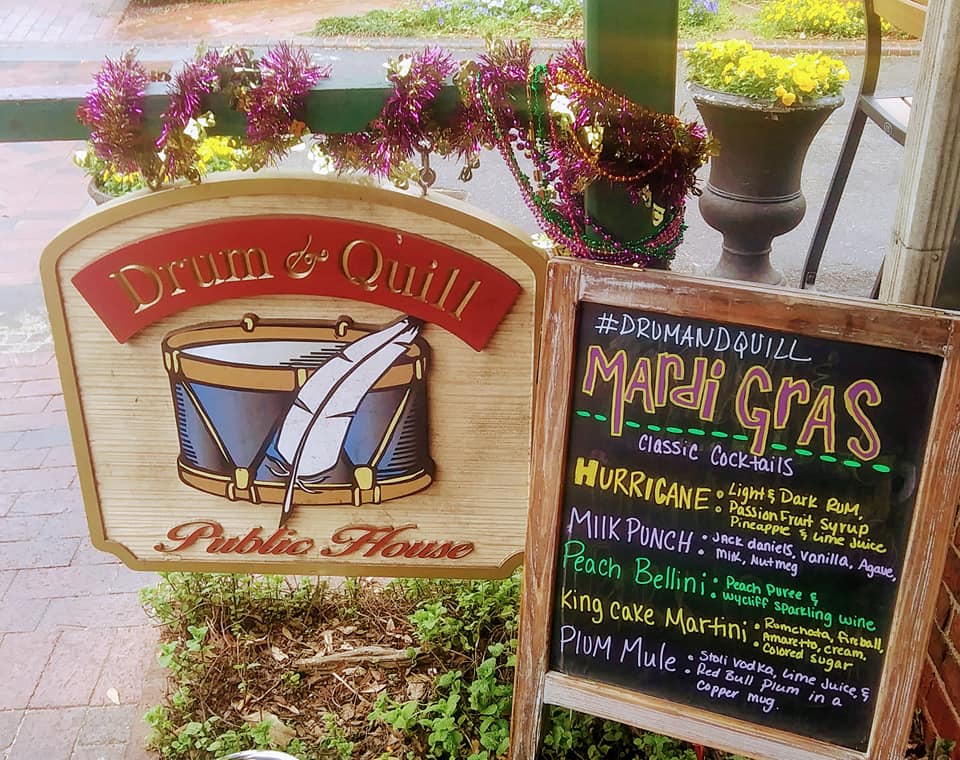 Drum & Quill
Public House
#DRUMANDQUILL
Mardi Gras
Classic Cocktails
HURRICANE: Light & Dark Rum,
Passion Fruit Syrup
Pineapple & Lime Juice
MILK PUNCH: Jack daniels, vanilla, Agave,
milk, Nutmeg
Peach Bellini: Peach Puree &
wycliff sparkling wine
King Cake Martini: Rumchata, fireball,
Amaretto, cream,
colored sugar
PLUM MULE: Stoli vodka, Lime Juice, &
Red Bull Plum in a
copper mug.